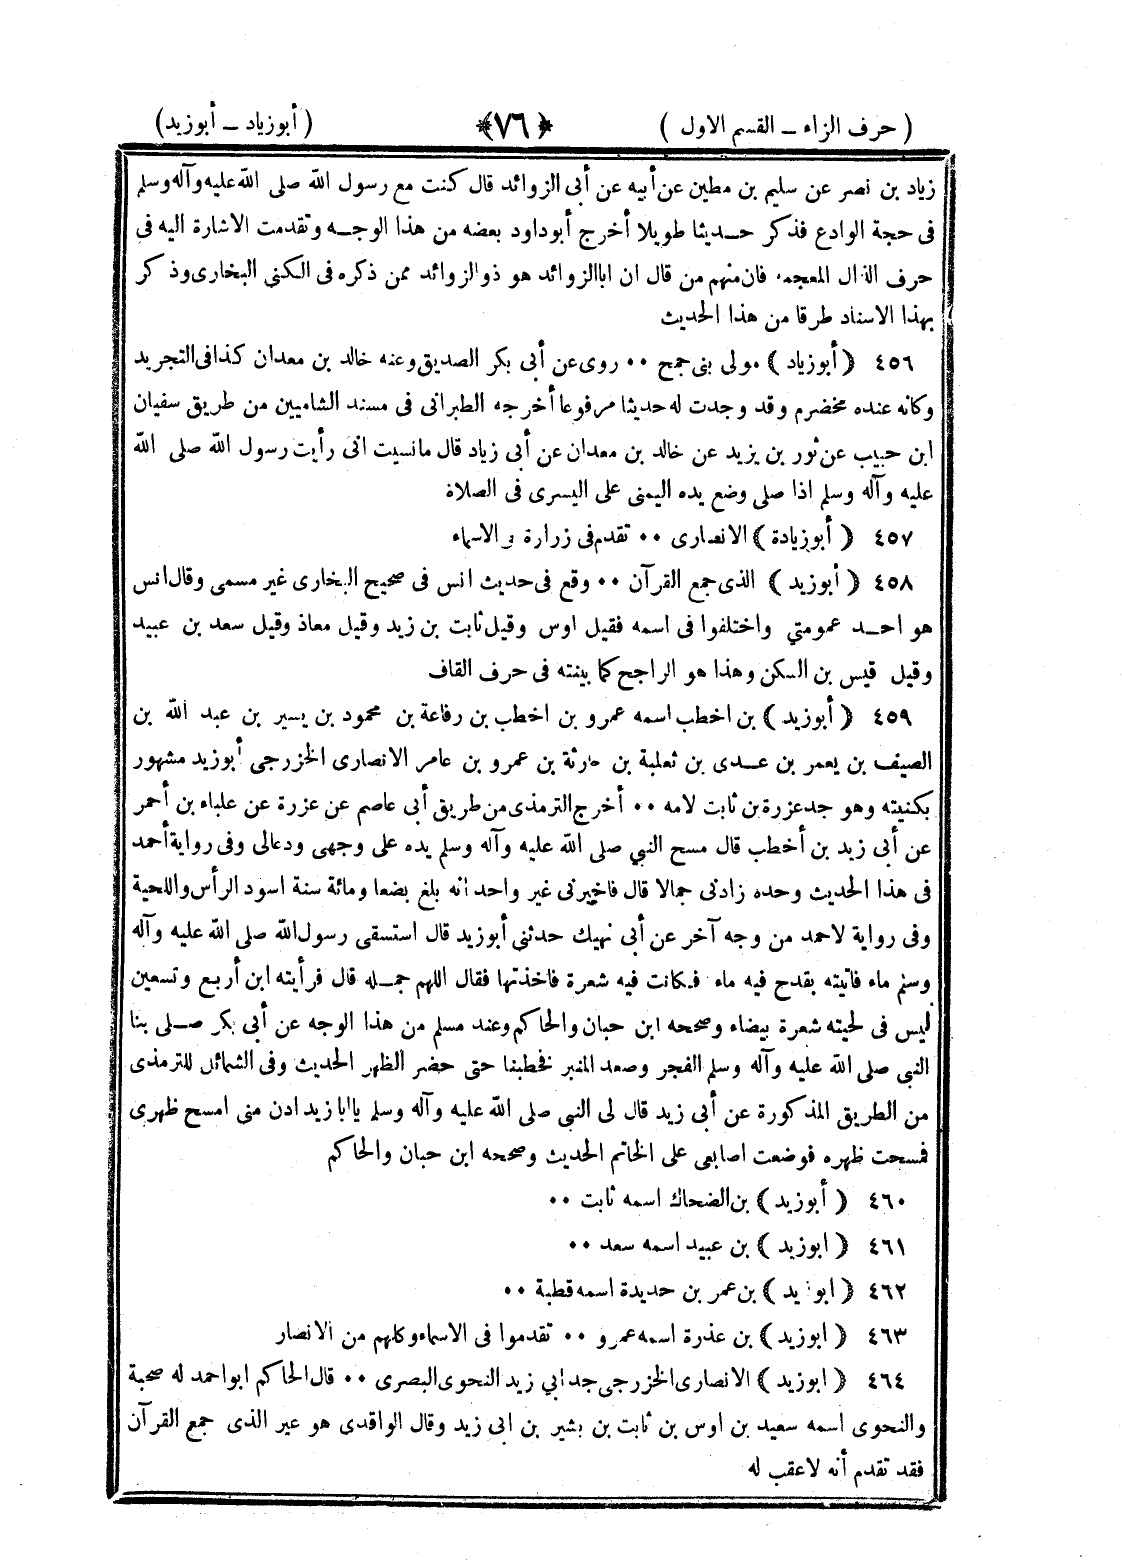 ( حرف الزاء ــ القسم الاول ) ﴿٧٦﴾ ( أبوزياد ــ أبوزيد)
زياد بن نصر عن سليم بن مطين عن أبيه عن أبى الزوائد قال كنت مع رسول الله صلى الله عليه وآله وسلم
فى حجة الوادع فذكر حـديثا طويلا أخرج أبوداود بعضه من هذا الوجـه وتقدمت الاشارة اليه فى
حرف الذال المعجمه فان منهم من قال ان ابا الزوائد هو ذو الزوائد ممن ذكره فى الكنى البخارى وذكر
بهذا الاسناد طرقا من هذا الحديث
٤٥٦ ﴿ أبوزياد ﴾ مولى بنى جمح ٠٠ روى عن أبى بكر الصديق وعنه خالد بن معدان كذا فى التجريد
وكانه عنده مخضرم وقد وجدت له حديثا مرفوعا أخرجه الطبرانى فى مسند الشاميين من طريق سفيان
ابن حبيب عن ثور بن يزيد عن خالد بن معدان عن أبى زياد قال مانسيت انى رأيت رسول الله صلى الله
عليه وآله وسلم اذا صلى وضع يده اليمنى على اليسرى فى الصلاة
٤٥٧ ﴿ أبوزيادة ﴾ الانصارى ٠٠ تقدم فى زرارة والاسماء
٤٥٨ ﴿ أبوزيد ﴾ الذى جمع القرآن ٠٠ وقع فى حديث انس فى صحيح البخارى غير مسمى وقال انس
هو احـد عمومتي واختلفوا فى اسمه فقيل اوس وقيل ثابت بن زيد وقيل معاذ وقيل سعد بن عبيد
وقيل قيس بن السكن وهذا هو الراجح كما بينته فى حرف القاف
٤٥٩ ﴿ أبوزيد ﴾ بن اخطب اسمه عمرو بن اخطب بن رفاعة بن محمود بن يسير بن عبد الله بن
الصيف بن يعمر بن عـدى بن ثعلبة بن حارثة بن عمرو بن عامر الانصارى الخزرجى أبوزيد مشهور
بكنيته وهو جد عزرة بن ثابت لامه ٠٠ أخرج الترمذى من طريق أبى عاصم عن عزرة عن علباء بن أحمر
عن أبى زيد بن أخطب قال مسح النبي صلى الله عليه وآله وسلم يده على وجهى ودعالى وفى رواية أحمد
فى هذا الحديث وحده زادنى جمالا قال فاخبرنى غير واحد انه بلغ بضعا ومائة سنة اسود الرأس واللحية
وفى رواية لاحمد من وجه آخر عن أبى نهيك حدثنى أبوزيد قال استسقى رسول الله صلى الله عليه وآله
وسلم ماء فاتيته بقدح فيه ماء فكانت فيه شعرة فاخذتها فقال اللهم جمـله قال فرأيته ابن أربع وتسعين
ليس فى لحيته شعرة بيضاء وصححه ابن حبان والحاكم وعند مسلم من هذا الوجه عن أبى بكر صـلى بنا
النبى صلى الله عليه وآله وسلم الفجر وصعد المنبر فخطبنا حتى حضر الظهر الحديث وفى الشمائل للترمذى
من الطريق المذكورة عن أبى زيد قال لى النبى صلى الله عليه وآله وسلم يا ابا زيد ادن منى امسح ظهرى
فمسحت ظهره فوضعت اصابعى على الخاتم الحديث وصححه ابن حبان والحاكم
٤٦٠ ﴿ أبوزيد ﴾ بن الضحاك اسمه ثابت ٠٠
٤٦١ ﴿ ابوزيد ﴾ بن عبيد اسمه سعد ٠٠
٤٦٢ ﴿ ابوزيد ﴾ بن عمر بن حديدة اسمه قطبة ٠٠
٤٦٣ ﴿ ابوزيد ﴾ بن عذرة اسمه عمرو ٠٠ تقدموا فى الاسماء وكلهم من الانصار
٤٦٤ ﴿ ابوزيد ﴾ الانصارى الخزرجى جد ابي زيد النحوى البصرى ٠٠ قال الحاكم ابو احمد له صحبة
والنحوى اسمه سعيد بن اوس بن ثابت بن بشير بن ابى زيد وقال الواقدى هو غير الذى جمع القرآن
فقد تقدم أنه لا عقب له